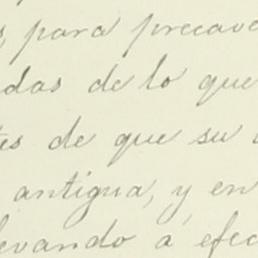 , para precav
das de lo que
tes de que su
antigua, y en
levando á efec